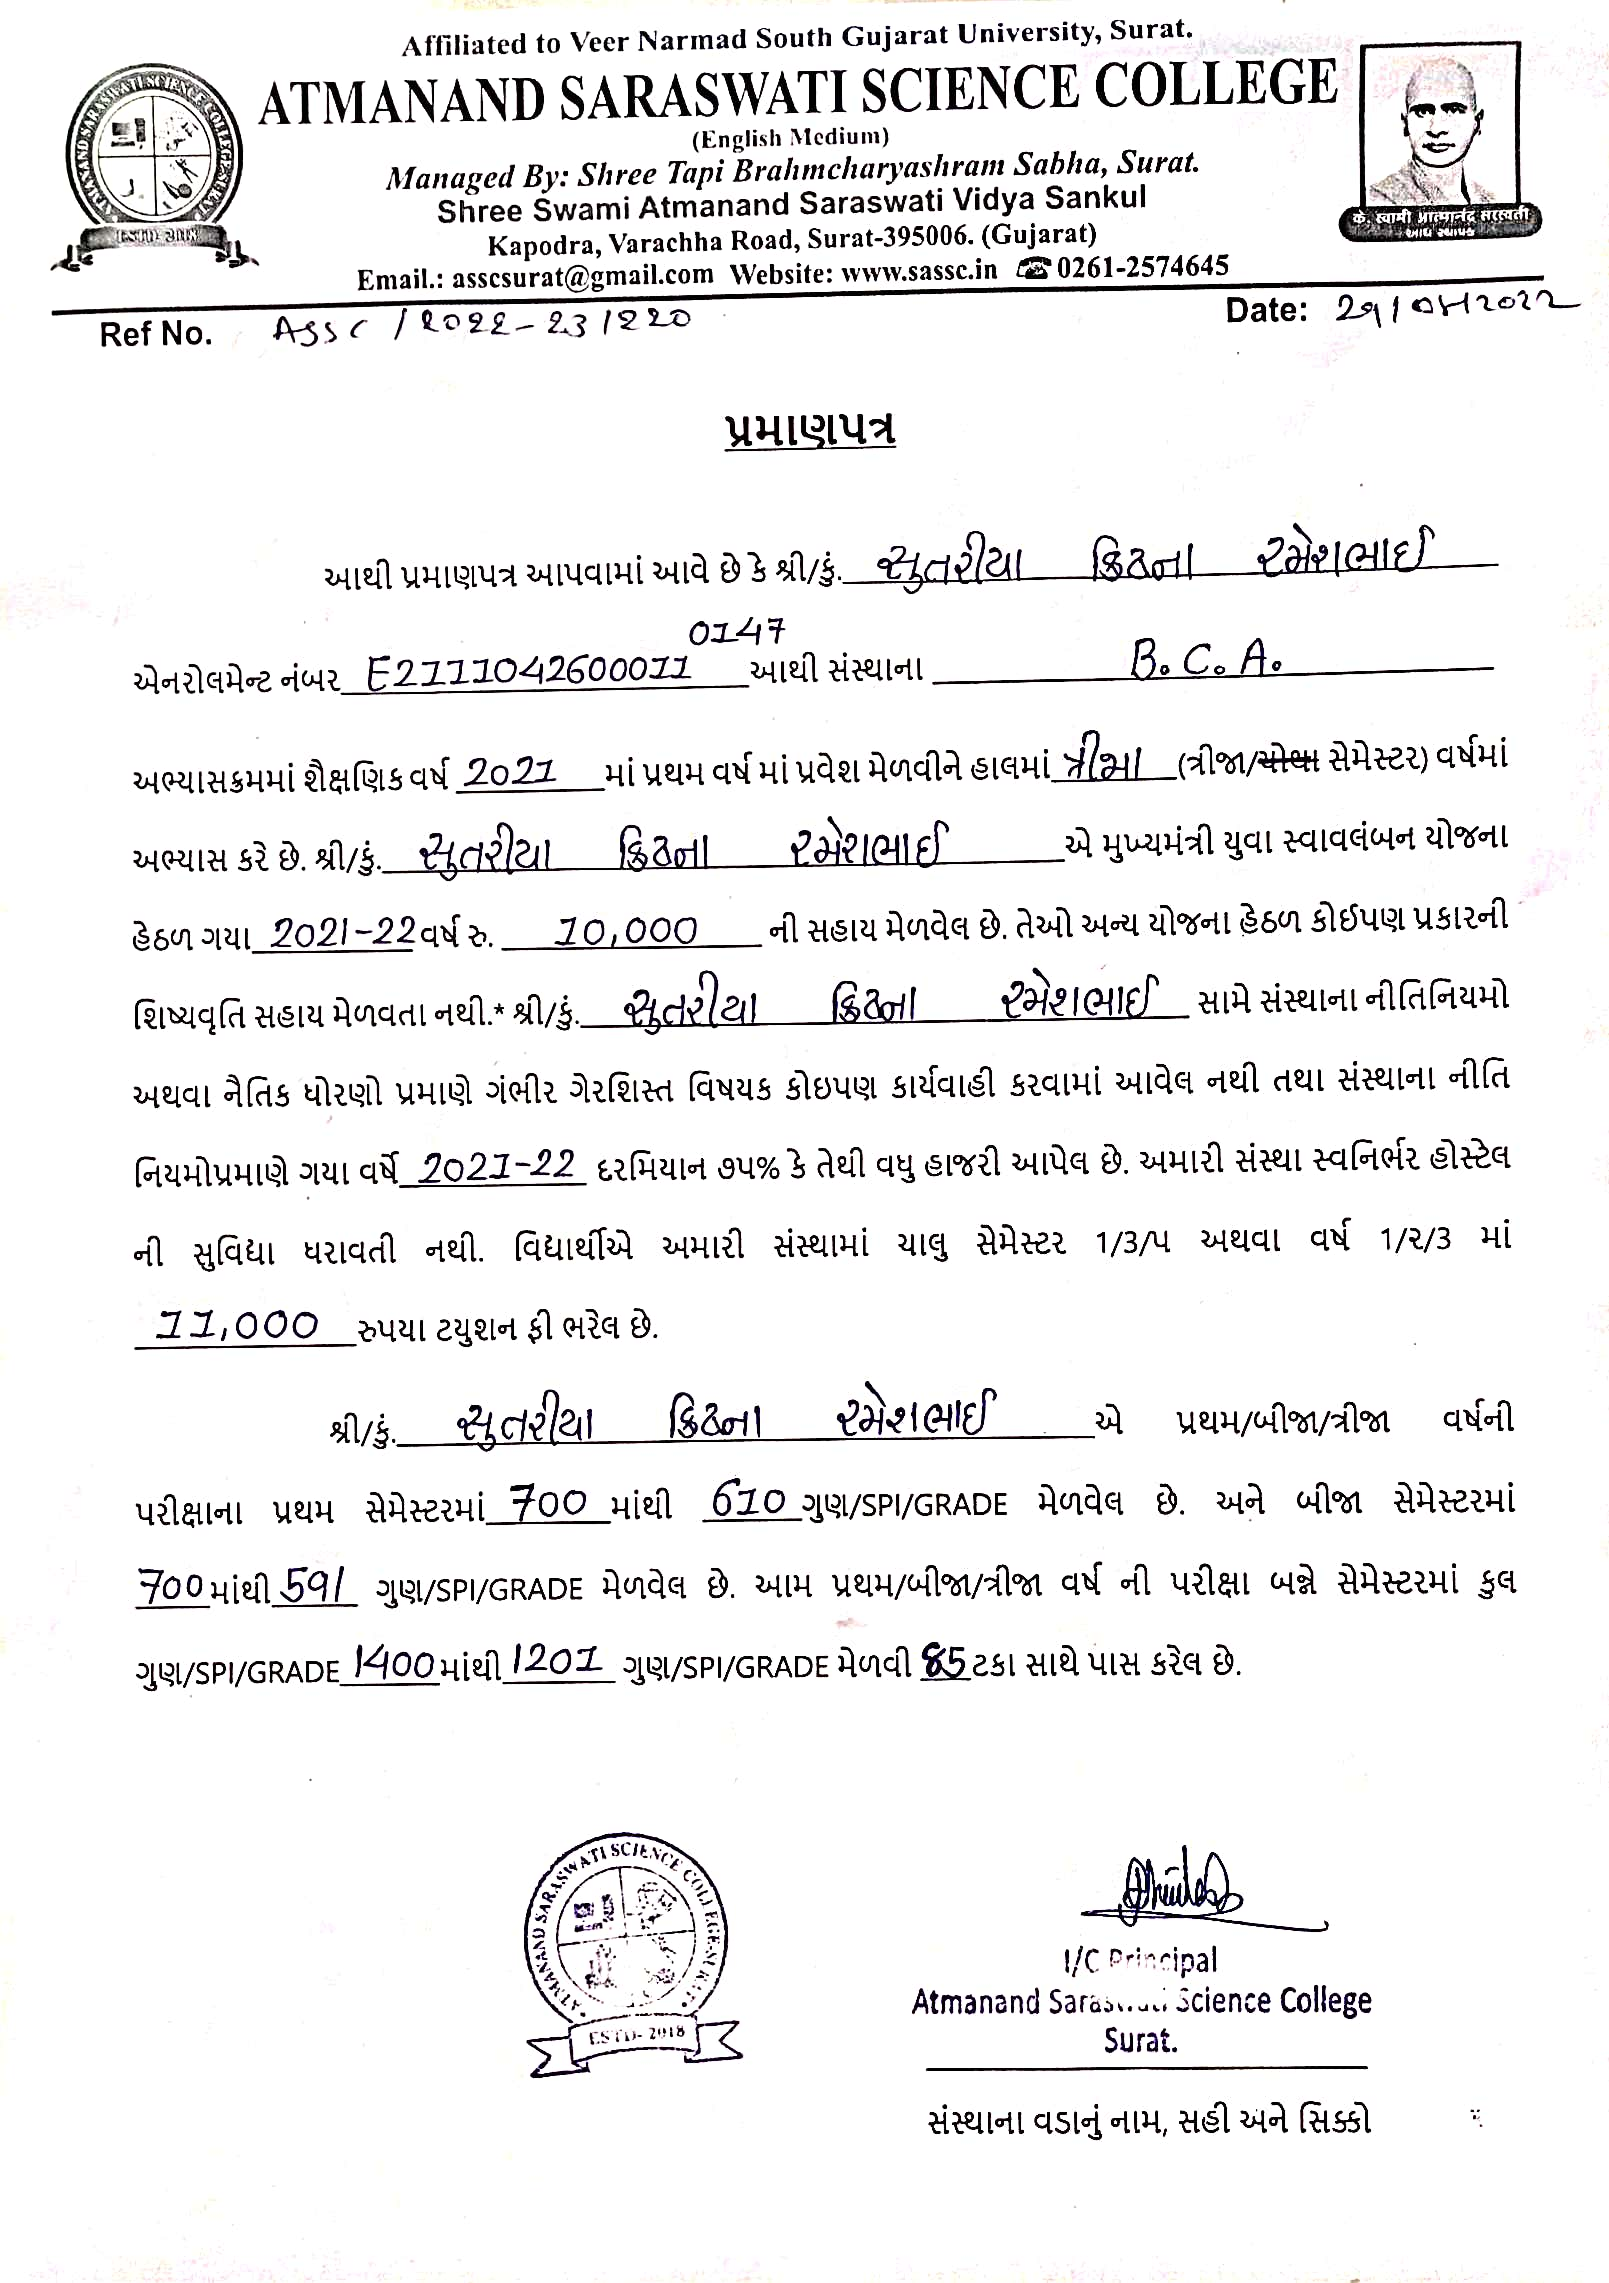 Affiliated to Veer Narmad South Gujarat University, Surat.
ATMANAND SARASWATI SCIENCE COLLEGE
(English Medium)
Managed By: Shree Tapi Brahmcharyashram Sabha, Surat.
Shree Swami Atmanand Saraswati Vidya Sankul
Kapodra, Varachha Road, Surat-395006. (Gujarat)
Email.: asscsurat@gmail.com Website: www.sassc.in ☎ 0261-2574645
ATMANAND SARASWATI SCIENCE COLLEGE-SURAT
ESTD- 2018
કે. સ્વામી આત્માનંદ સરસ્વતી
આદ્ય સ્થાપક
Ref No. ASSC/2022-23/220 Date:
પ્રમાણપત્ર
આથી પ્રમાણપત્ર આપવામાં આવે છે કે શ્રી/કું. સુતરીયા ક્રિષ્ના રમેશભાઈ
0147
એનરોલમેન્ટ નંબર E2111042600011 આથી સંસ્થાના B.C.A.
અભ્યાસક્રમમાં શૈક્ષણિક વર્ષ 2021 માં પ્રથમ વર્ષ માં પ્રવેશ મેળવીને હાલમાં ત્રીજા (ત્રીજા/ચોથા સેમેસ્ટર) વર્ષમાં
અભ્યાસ કરે છે. શ્રી/કું. સુતરીયા ક્રિષ્ના રમેશભાઈ એ મુખ્યમંત્રી યુવા સ્વાવલંબન યોજના
હેઠળ ગયા 2021-22 વર્ષ રુ. 10,000 ની સહાય મેળવેલ છે. તેઓ અન્ય યોજના હેઠળ કોઈપણ પ્રકારની
શિષ્યવૃતિ સહાય મેળવતા નથી.* શ્રી/કું. સુતરીયા ક્રિષ્ના રમેશભાઈ સામે સંસ્થાના નીતિનિયમો
અથવા નૈતિક ધોરણો પ્રમાણે ગંભીર ગેરશિસ્ત વિષયક કોઇપણ કાર્યવાહી કરવામાં આવેલ નથી તથા સંસ્થાના નીતિ
નિયમોપ્રમાણે ગયા વર્ષે 2021-22 દરમિયાન ૭૫% કે તેથી વધુ હાજરી આપેલ છે. અમારી સંસ્થા સ્વનિર્ભર હોસ્ટેલ
ની સુવિદ્યા ધરાવતી નથી. વિદ્યાર્થીએ અમારી સંસ્થામાં ચાલુ સેમેસ્ટર 1/3/૫ અથવા વર્ષ 1/૨/3 માં
11,000 રુપયા ટયુશન ફી ભરેલ છે.
શ્રી/કું. સુતરીયા ક્રિષ્ના રમેશભાઈ એ પ્રથમ/બીજા/ત્રીજા વર્ષની
પરીક્ષાના પ્રથમ સેમેસ્ટરમાં 700 માંથી 610 ગુણ/SPI/GRADE મેળવેલ છે. અને બીજા સેમેસ્ટરમાં
700 માંથી 591 ગુણ/SPI/GRADE મેળવેલ છે. આમ પ્રથમ/બીજા/ત્રીજા વર્ષ ની પરીક્ષા બન્ને સેમેસ્ટરમાં કુલ
ગુણ/SPI/GRADE 1400 માંથી 1201 ગુણ/SPI/GRADE મેળવી 85 ટકા સાથે પાસ કરેલ છે.
ATMANAND SARASWATI SCIENCE COLLEGE-SURAT
ESTD- 2018
I/C Principal
Atmanand Saraswati Science College
Surat.
સંસ્થાના વડાનું નામ, સહી અને સિક્કો